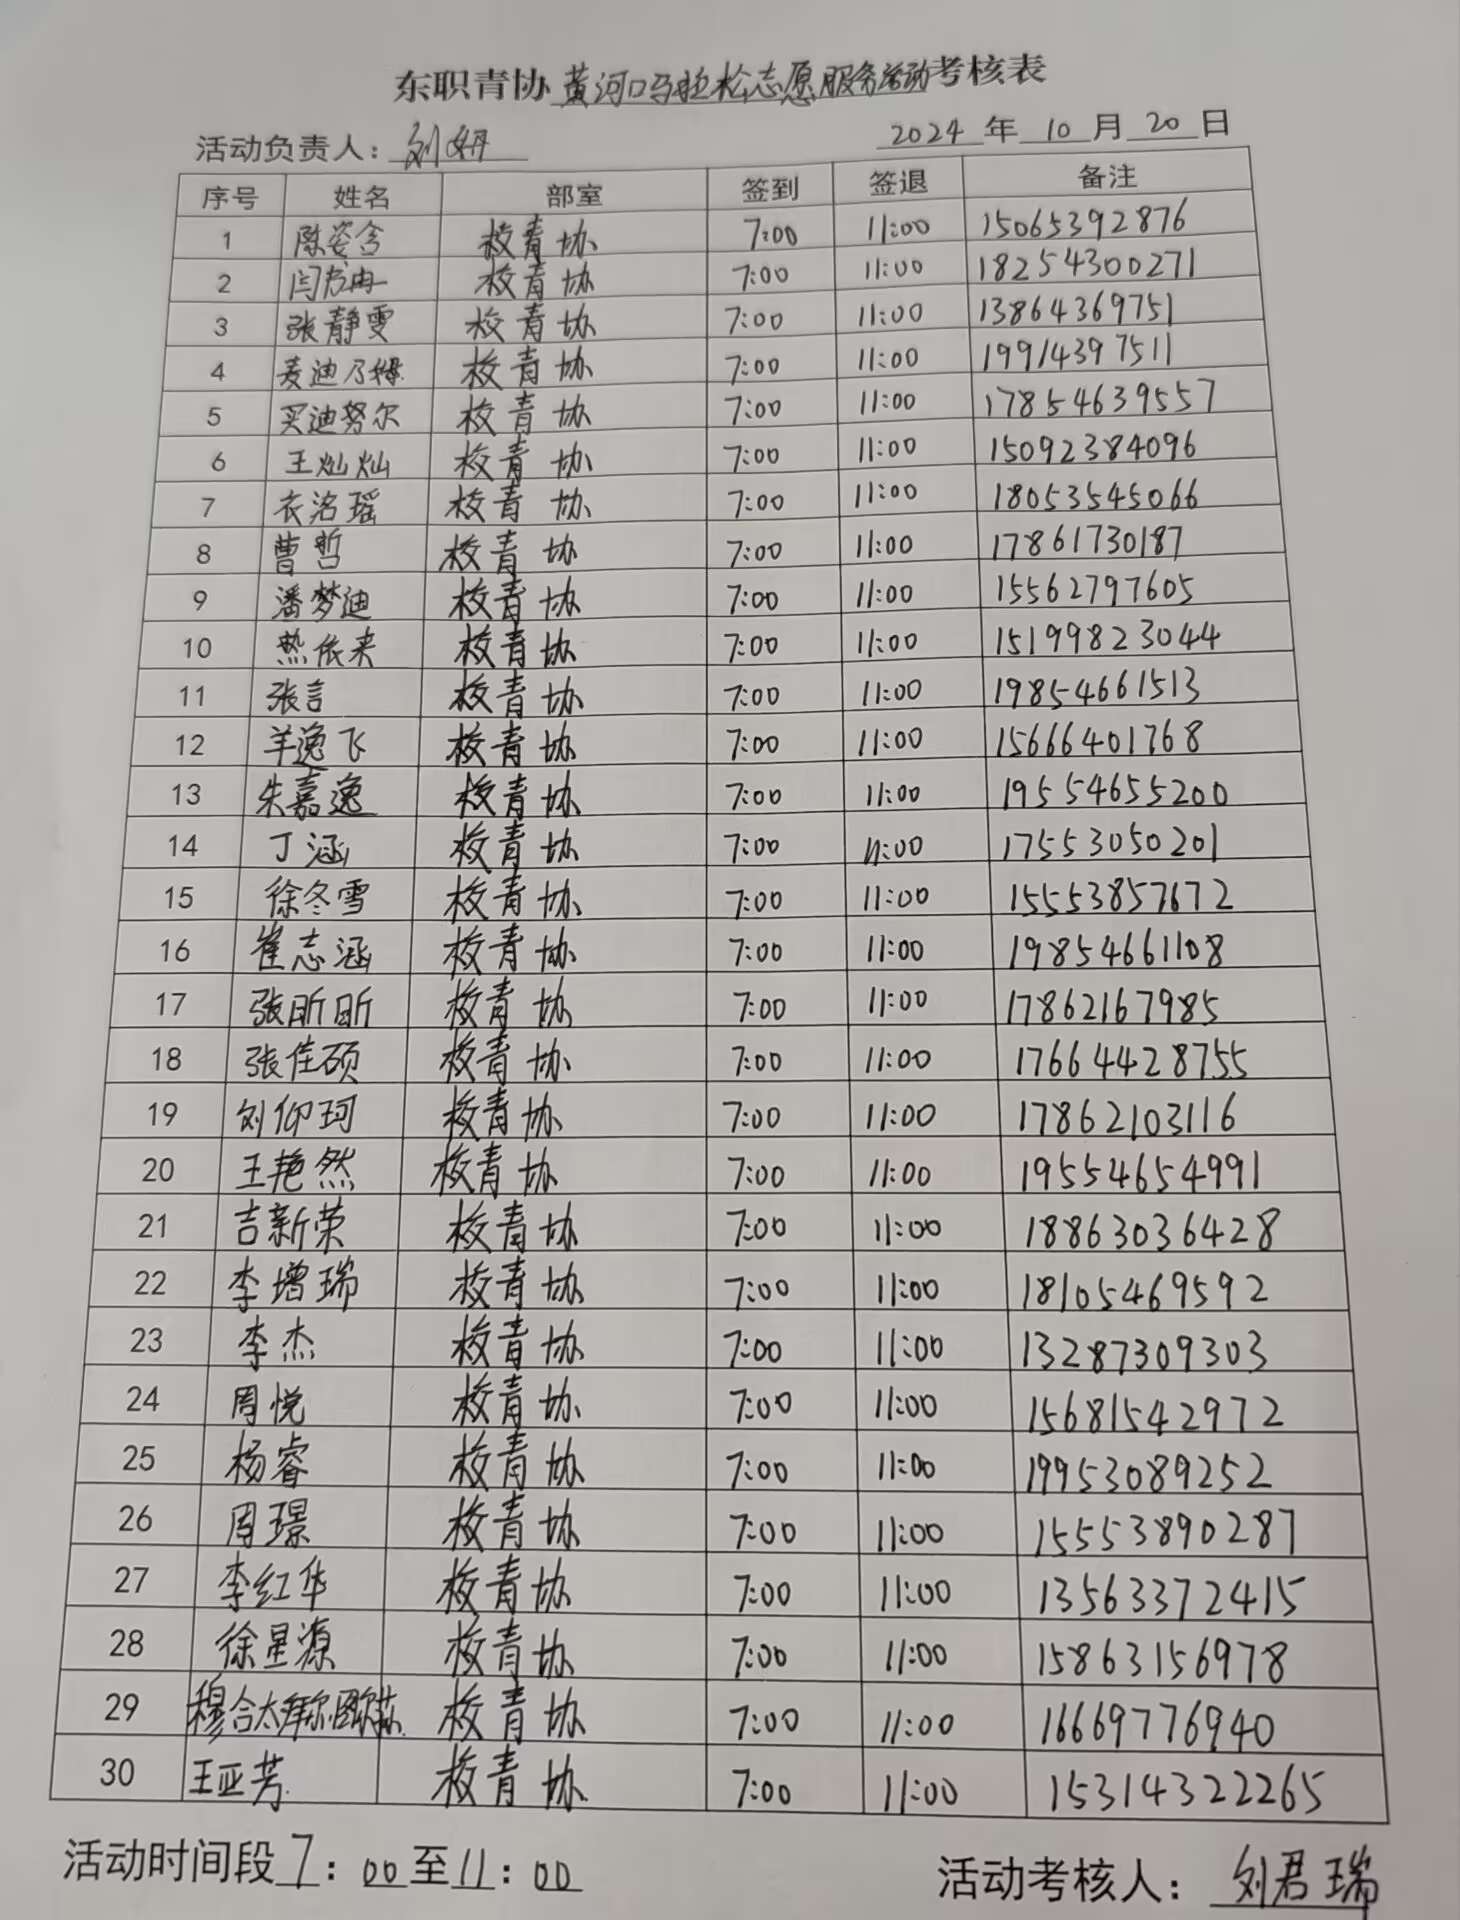 东职青协黄河口马拉松志愿服务活动考核表
活动负责人：刘妍 2024年10月20日
序号 姓名 部室 签到 签退 备注
1 陈姿含 校青协 7:00 11:00 15065392876
2 闫方冉 校青协 7:00 11:00 18254300271
3 张静雯 校青协 7:00 11:00 13864369751
4 麦迪乃姆 校青协 7:00 11:00 19914397511
5 买迪努尔 校青协 7:00 11:00 17854639557
6 王灿灿 校青协 7:00 11:00 15092384096
7 衣洺瑶 校青协 7:00 11:00 18053545066
8 曹哲 校青协 7:00 11:00 17861730187
9 潘梦迪 校青协 7:00 11:00 15562797605
10 热依来 校青协 7:00 11:00 15199823044
11 张言 校青协 7:00 11:00 19854661513
12 羊逸飞 校青协 7:00 11:00 15666401768
13 朱嘉逸 校青协 7:00 11:00 19554655200
14 丁涵 校青协 7:00 11:00 17553050201
15 徐冬雪 校青协 7:00 11:00 15553857672
16 崔志涵 校青协 7:00 11:00 19854661108
17 张昕昕 校青协 7:00 11:00 17862167985
18 张佳硕 校青协 7:00 11:00 17664428755
19 刘仰珂 校青协 7:00 11:00 17862103116
20 王艳然 校青协 7:00 11:00 19554654991
21 吉新荣 校青协 7:00 11:00 18863036428
22 李增瑞 校青协 7:00 11:00 18105469592
23 李杰 校青协 7:00 11:00 13287309303
24 周悦 校青协 7:00 11:00 15681542972
25 杨睿 校青协 7:00 11:00 19953089252
26 周璟 校青协 7:00 11:00 15553890287
27 李红华 校青协 7:00 11:00 13563372415
28 徐星源 校青协 7:00 11:00 15863156978
29 校青协 7:00 11:00 16669776940
30 王亚芳 校青协 7:00 11:00 15314322265
活动时间段7：00至11：00 活动考核人：刘君瑞